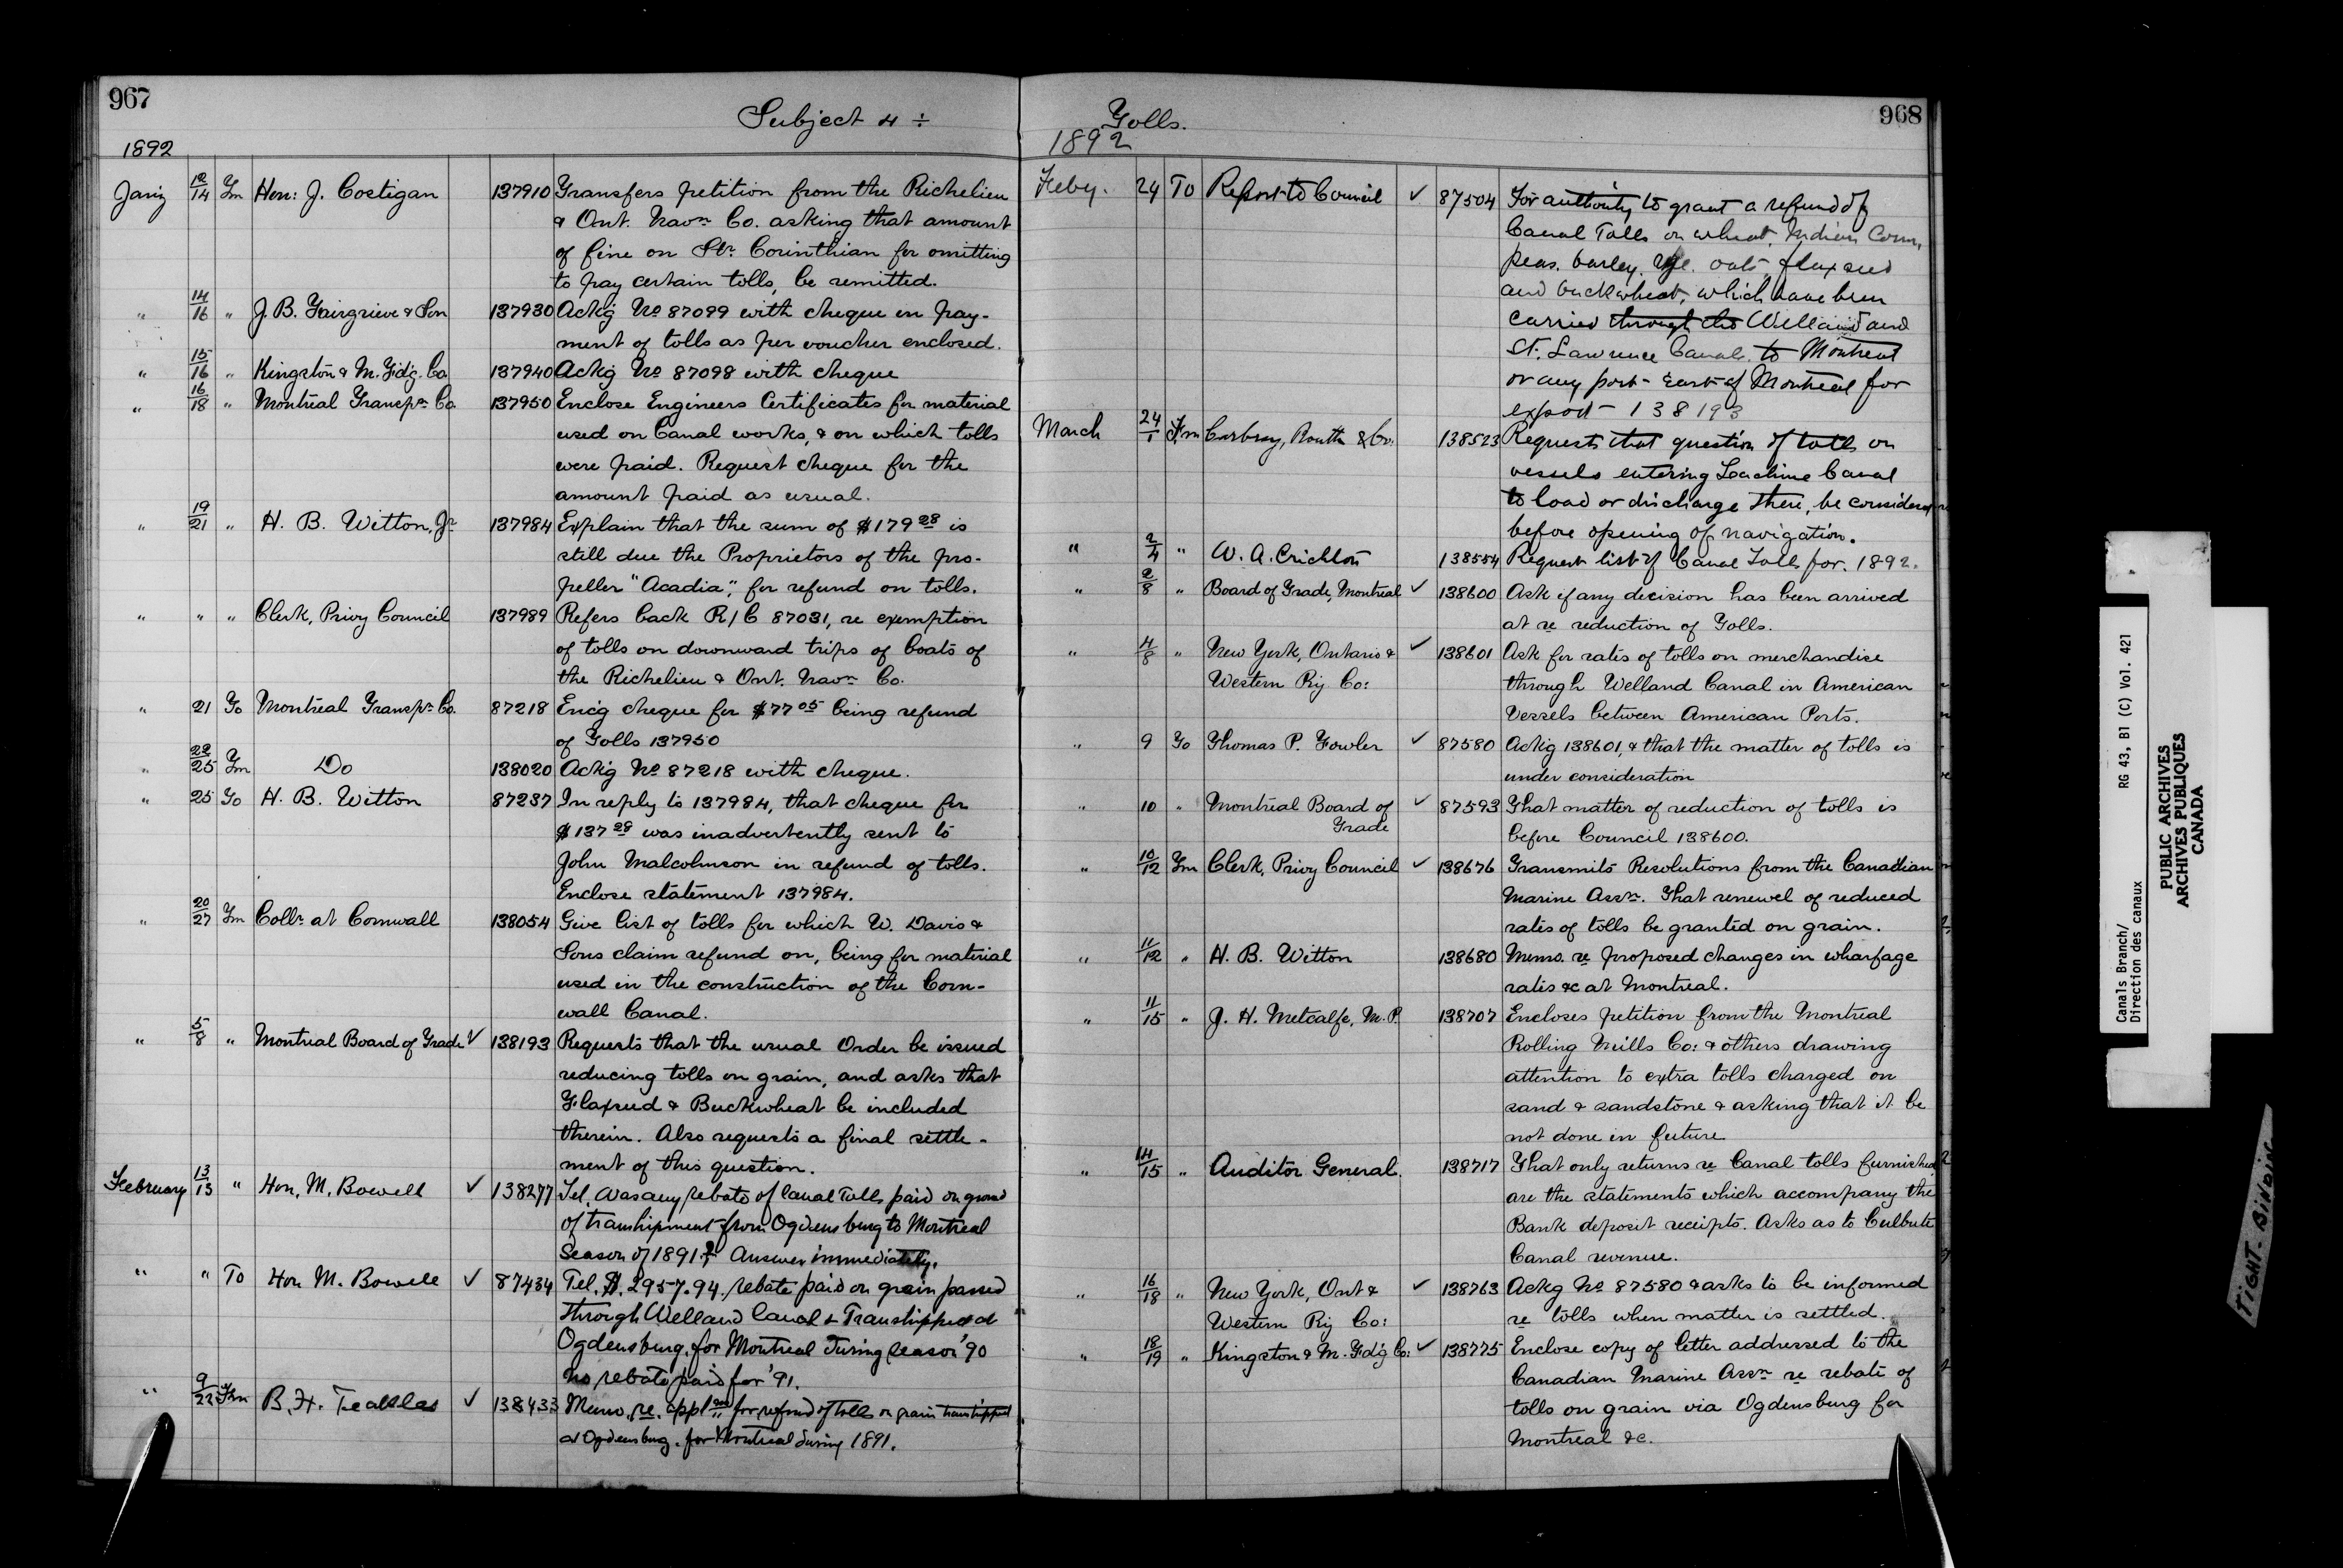 967
Subject 4 ÷
1892
Jan'y 12/14 Fm Hon: J. Costigan 137910 Transfers petition from the Richelieu
& Ont. Navn Co. asking that amount
of fine on Str. Corinthian for omitting
to pay certain tolls, be remitted.
" 14/16 " J. B. Fairgrieve & Son 137930 Ack'g No 87099 with cheque in pay-
ment of tolls as per voucher enclosed.
" 15/16 " Kingston & M. F'd'g. Co 137940 Ack'g No 87098 with cheque
" 16/18 " Montreal Transpn Co. 137950 Enclose Engineers Certificates for material
used on Canal works, & on which tolls
were paid. Request cheque for the
amount paid as usual.
" 19/21 " H. B. Witton, Jr 137984 Explain that the sum of $179 28 is
still due the Proprietors of the pro-
peller "Acadia", for refund on tolls.
" " " Clerk, Privy Council 137989 Refers back R/C 87031, re exemption
of tolls on downward trips of boats of
the Richelieu & Ont. Navn Co.
" 21 To Montreal Transpn Co. 87218 Enc'g cheque for $77 05 being refund
of Tolls 137950
" 22/25 Fm Do 138020 Ack'g No 87218 with cheque.
" 25 To H. B. Witton 87237 In reply to 137984, that cheque for
$137 28 was inadvertently sent to
John Malcolmson in refund of tolls.
Enclose statement 137984.
" 20/27 Fm Collr at Cornwall 138054 Give list of tolls for which W. Davis &
Sons claim refund on, being for material
used in the construction of the Corn-
wall Canal.
" 5/8 " Montreal Board of Trade ✓ 138193 Requests that the usual Order be issued
reducing tolls on grain, and asks that
Flaxseed & Buckwheat be included
therein. Also requests a final settle-
ment of this question.
February 13/13 " Hon. M. Bowell ✓ 138277 Tel. Was any rebate of Canal Tolls paid on ground
of transhipment from Ogdensburg to Montreal
Season of 1891? Answer immediately.
" " To Hon M. Bowell ✓ 87434 Tel. $2957.94 rebate paid on grain passed
through Welland Canal & Transhipped at
Ogdensburg, for Montreal during season '90
No rebate paid for '91.
" 9/22 Fm B. H. ✓ 138433 Memo. re. appl for refund of tolls on grain transhipped
at Ogdensburg, for Montreal during 1891.
968
Tolls.
1892
Feby. 24 To Report to Council ✓ 87504 For authority to grant a refund of
Canal Tolls on wheat, Indian Corn,
peas, barley, rye, oats, flaxseed
and buckwheat, which have been
carried through the Welland and
St. Lawrence Canals to Montreal
or any port east of Montreal for
export - 138193
March 24/1 Fm Carbray, Routh & Co. 138523 Requests that question of tolls on
vessels entering Lachine Canal
to load or discharge there, be considered
before opening of navigation.
" 2/4 " W. A. Crichton 138554 Request list of Canal Tolls for 1892.
" 2/8 " Board of Trade, Montreal ✓ 138600 Ask if any decision has been arrived
at re reduction of Tolls.
" 4/8 " New York, Ontario & ✓ 138601 Ask for rates of tolls on merchandise
Western Ry Co: through Welland Canal in American
Vessels between American Ports.
" 9 To Thomas P. Fowler ✓ 87580 Ack'g 138601, & that the matter of tolls is
under consideration
" 10 " Montreal Board of ✓ 87593 That matter of reduction of tolls is
Trade before Council 138600.
" 10/12 Fm Clerk, Privy Council ✓ 138676 Transmits Resolutions from the Canadian
Marine Assn. That renewel of reduced
rates of tolls be granted on grain.
" 11/12 " H. B. Witton 138680 Memo. re proposed changes in wharfage
rates &c at Montreal.
" 11/15 " J. H. Metcalfe, M. P. 138707 Encloses petition from the Montreal
Rolling Mills Co: & others drawing
attention to extra tolls charged on
sand & sandstone & asking that it be
not done in future
" 14/15 " Auditor General. 138717 That only returns re Canal tolls furnished
are the statements which accompany the
Bank deposit receipts. Asks as to Culbute
Canal revenue.
" 16/18 " New York, Ont & ✓ 138763 Ackg No 87580 & asks to be informed
Western Ry Co: re tolls when matter is settled.
" 18/19 " Kingston & M. F'd'g Co: ✓ 138775 Enclose copy of letter addressed to the
Canadian Marine Assn re rebate of
tolls on grain via Ogdensburg for
Montreal &c.
Canals Branch/ RG 43, B1 (C) Vol. 421
Direction des canaux
PUBLIC ARCHIVES
ARCHIVES PUBLIQUES
CANADA
TIGHT BINDING